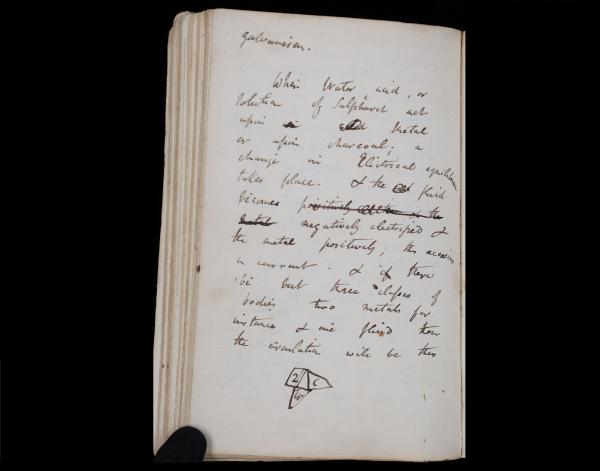 galvanism.
When Water, acid, or
Solution of Sulphuret act
upon a Metal
or upon charcoal; a
change in Electrical equilibrium
takes place. & the fluid
becomes positively
metal negatively electrified &
the metal positively; this occasions
a current. & if there
be but three classes of
bodies two metals for
instance & one fluid then
the circulation will be thus
Z C
W